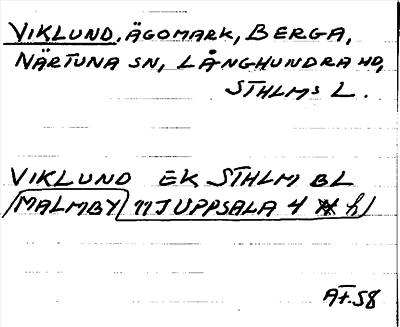 VIKLUND, ÄGOMARK, BERGA,
NÄRTUNA SN, LÅNGHUNDRA HD,
STHLMS L.
VIKLUND EK STHLM BL
MALMBY 11J UPPSALA 4 h
AF.58